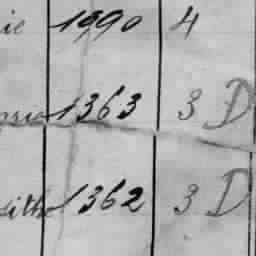 ie 1990 4
1363 3 D
1362 3 D